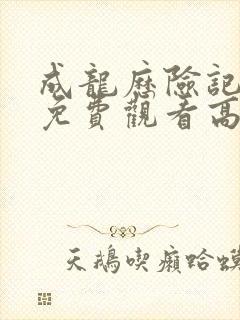 成龍歷險記
免費觀看高
天鵝喫癩蛤蟆